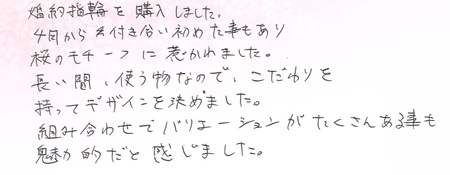 婚約指輪を購入しました。
4月からお付き合い初めた事もあり
桜のモチーフに惹かれました。
長い間、使う物なので、こだわりを
持ってデザインを決めました。
組み合わせでバリエーションがたくさんある事も
魅力的だと感じました。